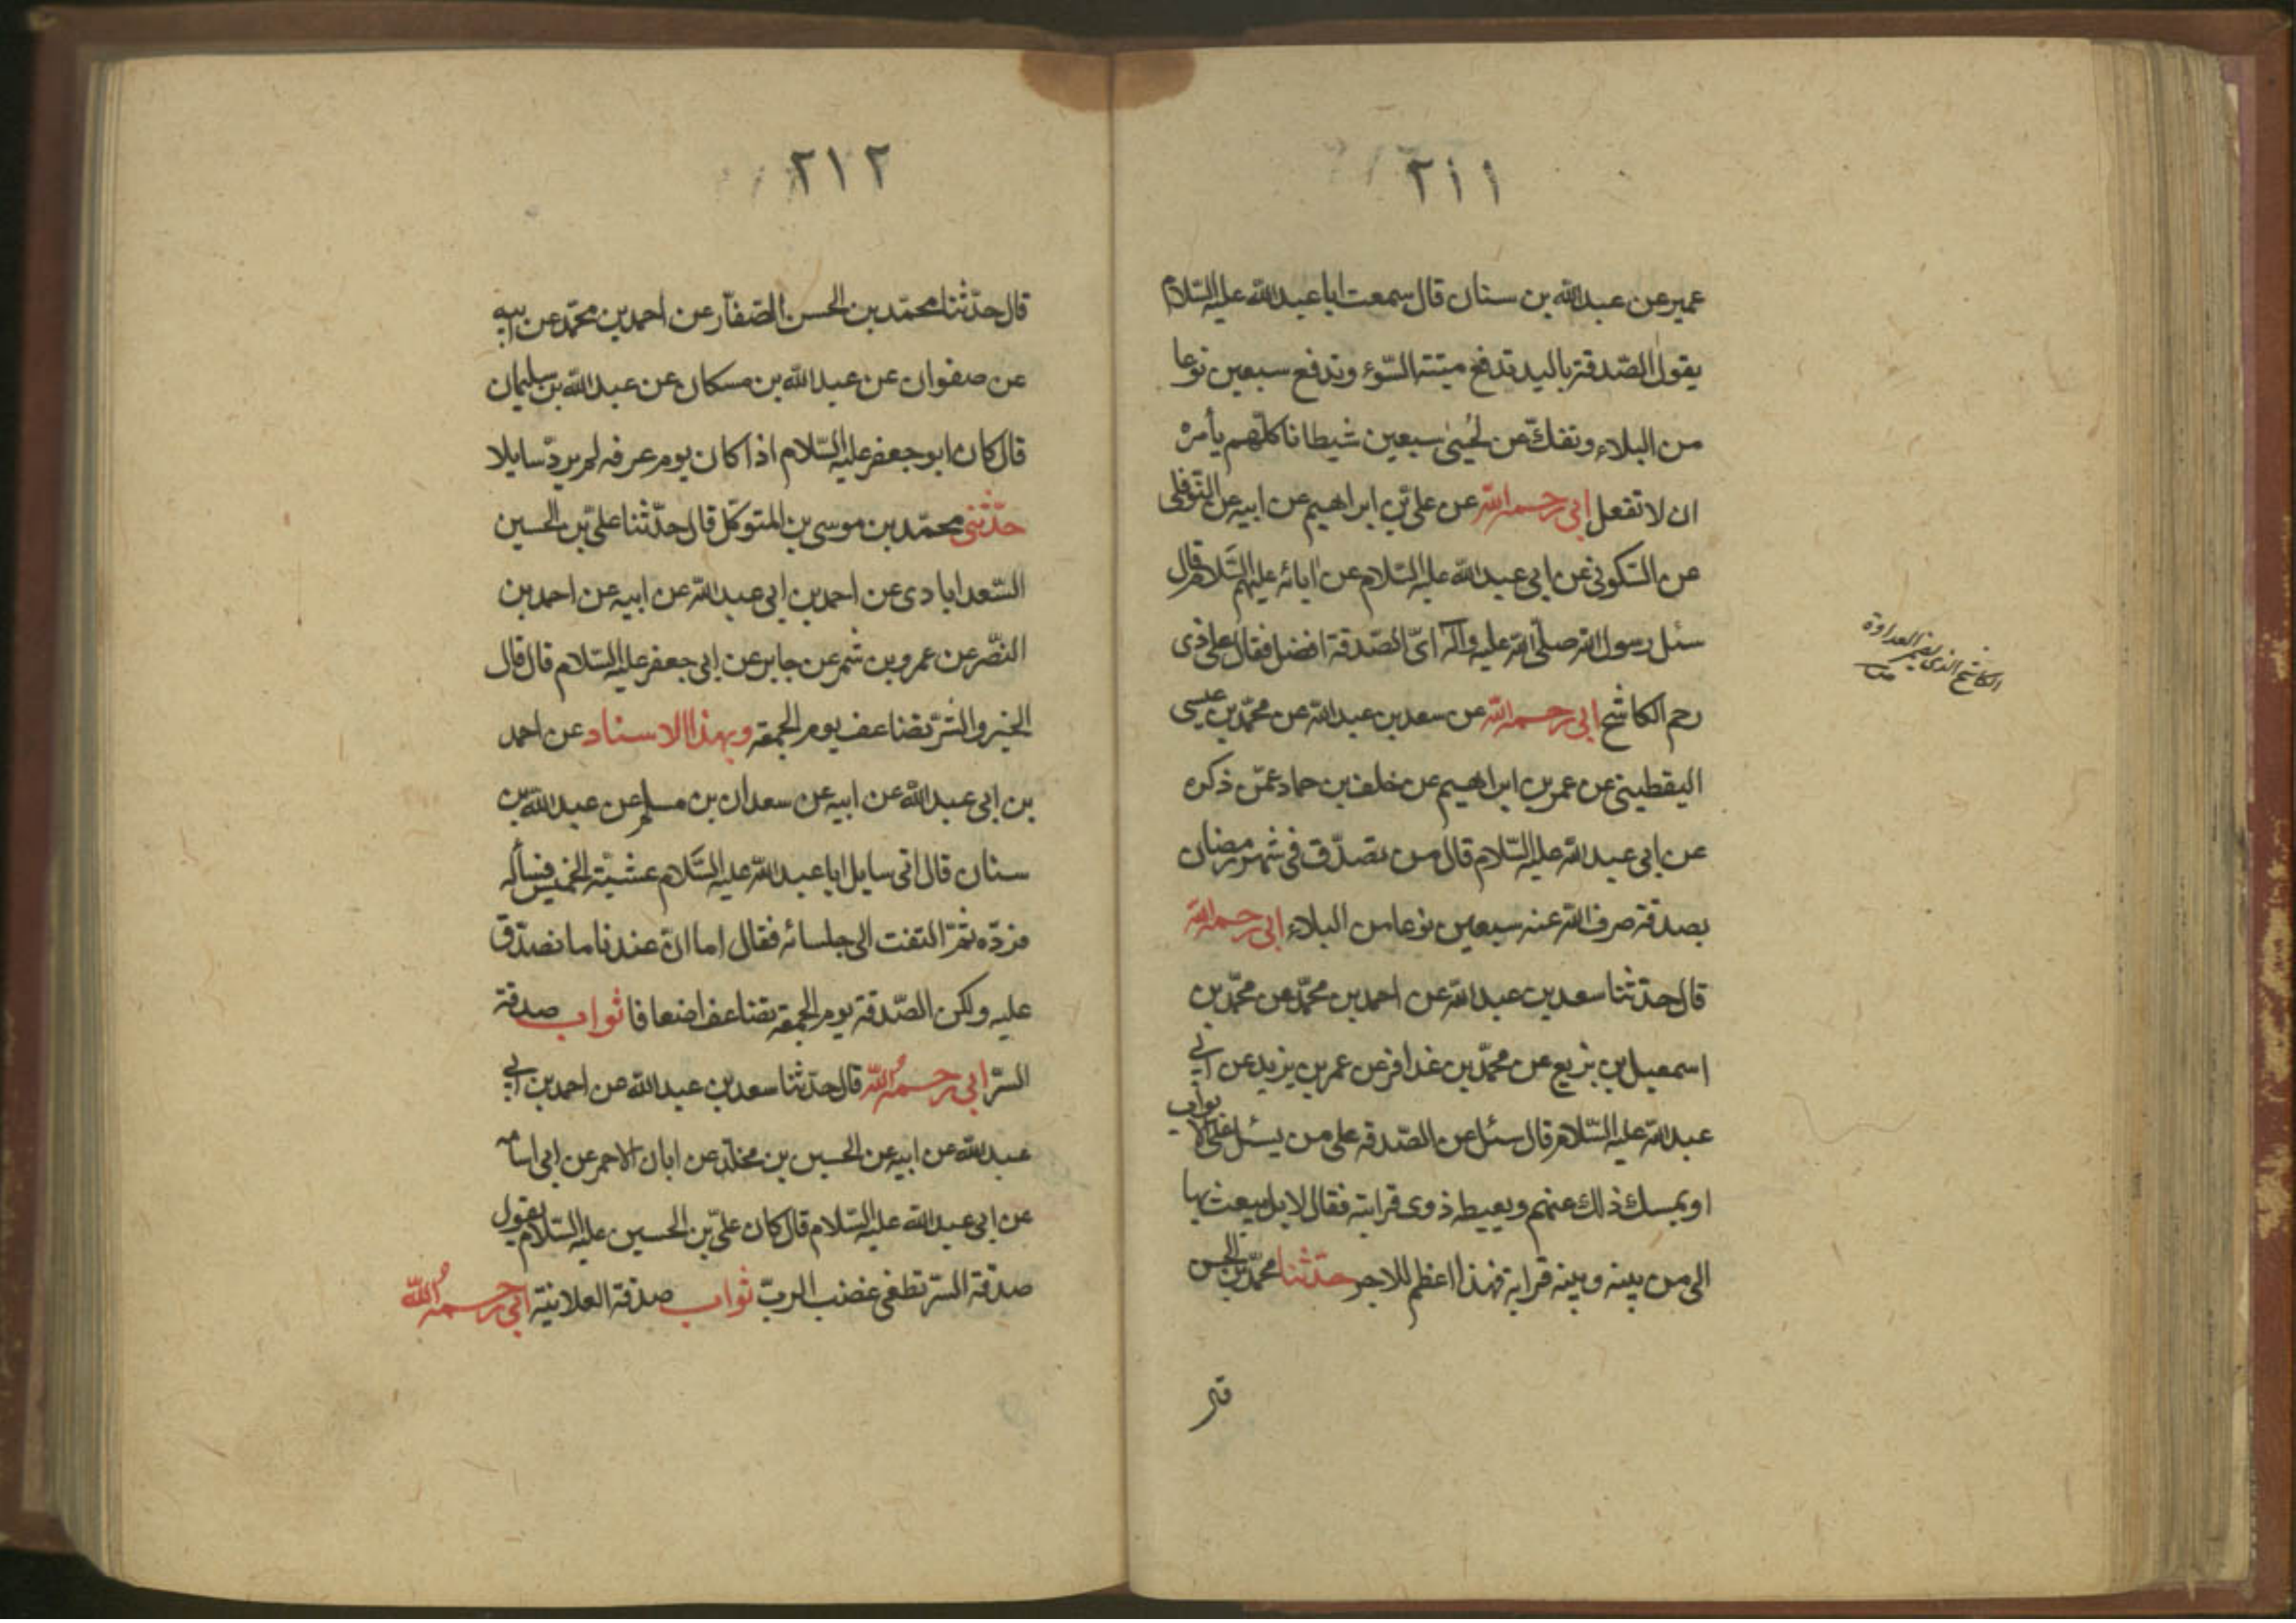 ٢١١
عمير عن عبدالله بن سنان قال سمعت ابا عبدالله عليه السّلام
يقول الصّدقة باليد تدفع ميتة السّوء وتدفع سبعين نوعا
من البلاء وتفكّ عن لحيى سبعين شيطانا كلّهم يأمره
ان لا تفعل ابى رحمه الله عن علىّ بن ابراهيم عن ابيه عن النّوفلى
عن السّكونى عن ابى عبدالله عليه السّلام عن ابائه عليهم السّلام قال
سئل رسول الله صلّى الله عليه وآله اىّ الصّدقة افضل فقال على ذى
رحم الكاشح ابى رحمه الله عن سعد بن عبدالله عن محمّد بن عيسى
اليقطينى عن عمر بن ابراهيم عن خلف بن حماد عمّن ذكره
عن ابى عبدالله عليه السّلام قال من تصدّق فى شهر رمضان
بصدقة صرف الله عنه سبعين نوعا من البلاء ابى رحمه الله
قال حدّثنا سعد بن عبدالله عن احمد بن محمّد عن محمّد بن
اسمعيل بن بزيع عن محمّد بن عذافر عن عمر بن يزيد عن ابى
عبدالله عليه السّلام قال سئل عن الصّدقه على من يسئل على الابواب
او يمسك ذلك عنهم ويعيطه ذوى قرابته فقال لا بل يبعث بها
الى من بينه وبينه قرابة فهذا اعظم للاجر حدّثنا محمّد بن الحسن
الكاشح الذى يضمر العداوة
٢١٢
قال حدّثنا محمّد بن الحسن الصّفّار عن احمد بن محمّد عن ابيه
عن صفوان عن عبدالله بن مسكان عن عبدالله بن سليمان
قال كان ابو جعفر عليه السّلام اذا كان يوم عرفه لم يردّ سايلا
حدّثنى محمّد بن موسى بن المتوكّل قال حدّثنا علىّ بن الحسين
السّعدابادى عن احمد بن ابى عبدالله عن ابيه عن احمد بن
النّضر عن عمرو بن شمر عن جابر عن ابى جعفر عليه السّلام قال قال
الخير والشّرّ تضاعف يوم الجمعة وبهذا الاسناد عن احمد
بن ابى عبدالله عن ابيه عن سعدان بن مسلم عن عبدالله بن
سنان قال اتى سايل ابا عبدالله عليه السّلام عشيّة الخميس فسأله
فردّه ثمّ التفت الى جلسائه فقال اما انّ عندنا ما نصدّق
عليه ولكن الصّدقة يوم الجمعة تضاعف اضعافا ثواب صدقة
السّرّ ابى رحمه الله قال حدّثنا سعد بن عبدالله عن احمد بن ابى
عبدالله عن ابيه عن الحسين بن مخلّد عن ابان الاحمر عن ابى اسامه
عن ابى عبدالله عليه السّلام قال كان علىّ بن الحسين عليه السّلام يقول
صدقة السّرّ تطفى غضب الربّ ثواب صدقة العلانيّة ابى رحمه الله